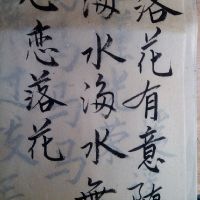 落花有意随
海水海水無
恋落花